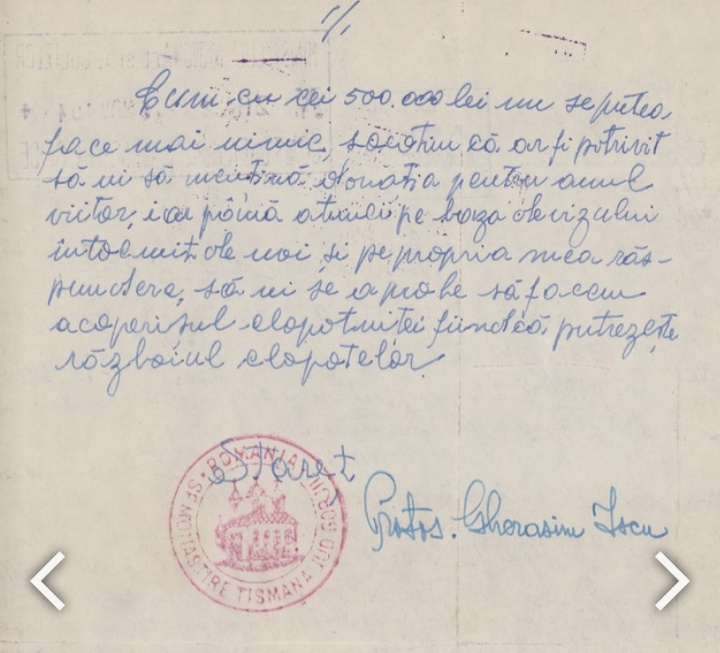 ./.
Cum cu cei 500.000 lei nu se putea
face mai nimic, socotim că ar fi potrivit
să ni să mențină donația pentru anul
viitor, iar până atunci, pe baza devizului
întocmit de noi și pe propria mea răs-
pundere, să ni se aprobe să facem
acoperișul clopotniței fiindcă putrezește
războiul clopotelor.
Stareț
Protos. Gherasim Iscu
ROMANIA JUD. GORJIU
SF. MONASTIRE TISMANA